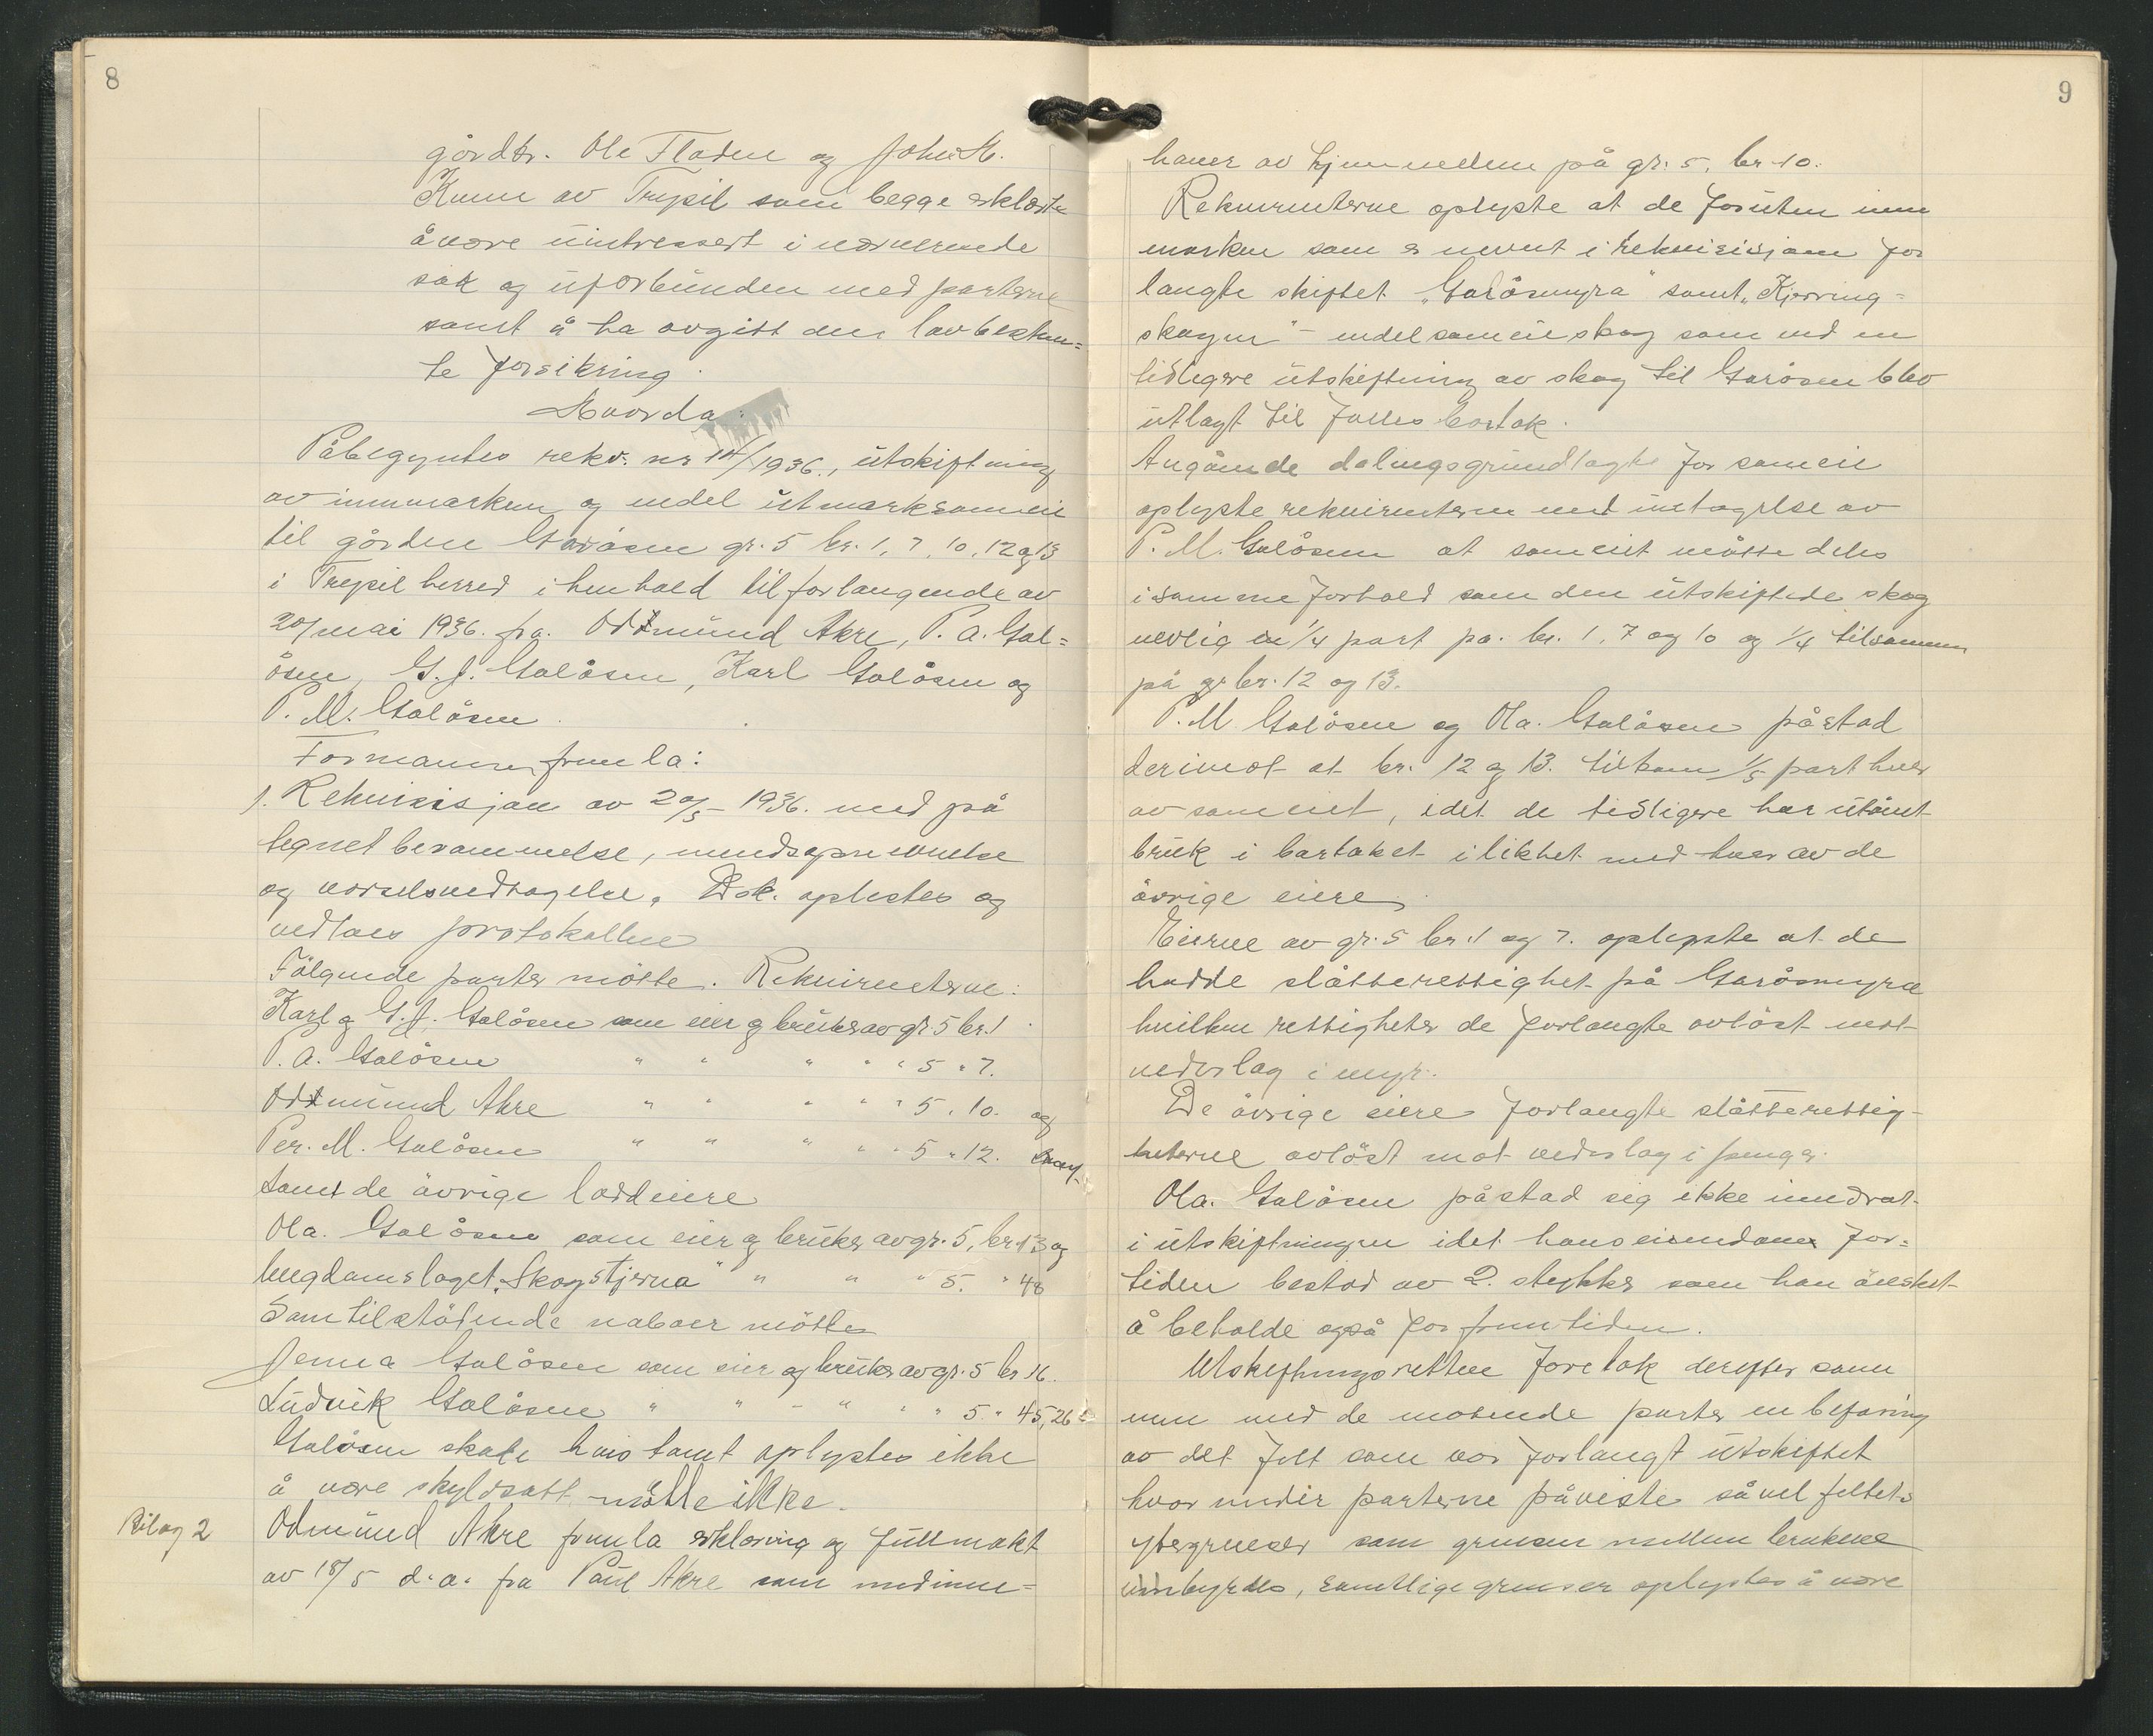 8
gårdbr. Ole Fladen og John M.
Kunn av Trysil som begge erklærte
å være uintressert i nærværende
sak og uforbunden med parterne
samt å ha avgitt den lovbestem=
te forsikring.
Hvorda:
Påbegyntes rekv. nr 14/1936, utskiftning
av innmarken og endel utmarksameie
til gården Galåsen gr. 5 br. 1, 7, 10, 12 og 13
i Trysil herred i henhold til forlangende av
20/mai 1936. fra Oddmund Akre, P. A. Gal=
åsen, G. J. Galåsen, Karl Galåsen og
P. M. Galåsen.
Formannen fremla:
1. Rekvisisjon av 20/5 1936. med på
tegnet berammelse, mendsopnevnelse
og varselsvedtagelse. Dok. oplestes og
vedlaes protokollen
Følgende parter møtte. Rekvirenterne:
Karl og G. J. Galåsen som eier og bruker av gr. 5 br. 1.
P. A. Galåsen " " " " " 5 " 7.
Oddmund Akre " " " " " 5 " 10. og
Per. M. Galåsen " " " " " 5 " 12.
samt de øvrige loddeiere
Ola. Galåsen som eier og bruker av gr. 5, br. 13 og
Ungdomslaget "Skogstjerna" " " " 5. " 48
Som tilstøtende naboer møtte
Jenna Galåsen som eier og bruker av gr. 5 br 16.
Ludvik Galåsen " " " " " " 5 " 45, 26
Galåsen skole hvis tomt oplystes ikke
å være skyldsatt møtte ikke.
Bilag 2
Odmund Akre fremla erklæring og fullmakt
av 18/5 d. a. fra Paul Akre som medinne=
9
haver av hjemmelen på gr. 5, br. 10.
Rekvirenterne oplyste at de foruten inn
marken som er nevnt i rekvisisjonen for
langte skiftet "Galåsmyra" samt "Kjerring=
skogen" - endel sameieskog som ved en
tidligere utskiftning av skog til Galåsen blev
utlagt til felles bortak.
Angående delingsgrundlaget for sameie
oplyste rekvirenterne med undtagelse av
P. M. Galåsen at sameiet måtte deles
i samme forhold som den utskiftede skog
nevlig en 1/4 part på br. 1, 7 og 10 og 1/4 tilsammen
på gr br. 12 og 13.
P. M. Galåsen og Ola. Galåsen påstod
derimot at br. 12 og 13. tilkom 1/5 part hver
av sameiet, idet de tidligere har utøvet
bruk i bartaket i likhet med hver av de
øvrige eiere.
Eierne av gr. 5 br. 1 og 7. oplyste at de
hadde slåtterettighet på Galåsmyra
hvilken rettigheter de forlangte avløst mot
vederlag i myr.
De øvrige eiere forlangte slåtterettig-
heterne avløst mot vederlag i penger.
Ola. Galåsen påstod sig ikke inndratt
i utskiftningen idet hans eiendom for=
tiden bestod av 2. stykker som han ønsket
å beholde også for fremtiden.
Utskiftningsretten foretok derefter sam
men med de møtende parter en befaring
av det felt som var forlangt utskiftet
hvorunder parterne påviste såvel feltets
yttergrenser som grensen mellem brukene
innbyrdes, samtlige grenser oplystes å være